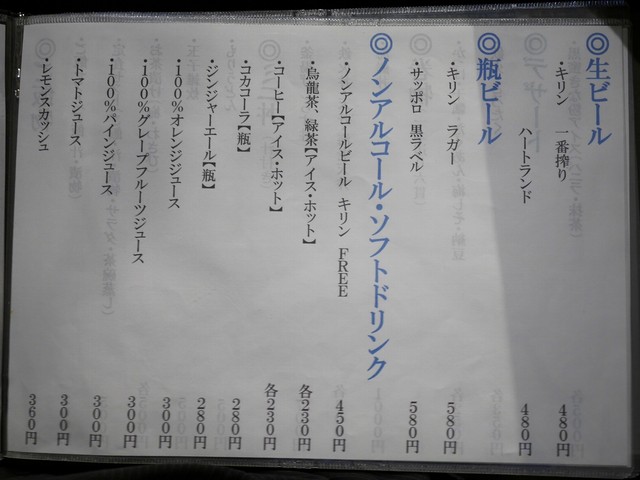 ◎生ビール
・キリン 一番搾り 480円
ハートランド 480円
◎瓶ビール
・キリン ラガー 580円
・サッポロ 黒ラベル 580円
◎ノンアルコール・ソフトドリンク
・ノンアルコールビール キリン FREE 450円
・烏龍茶、緑茶【アイス・ホット】 各230円
・コーヒー【アイス・ホット】 各230円
・コカコーラ【瓶】 280円
・ジンジャーエール【瓶】 280円
・100%オレンジジュース 300円
・100%グレープフルーツジュース 300円
・100%パインジュース 300円
・トマトジュース 300円
・レモンスカッシュ 360円